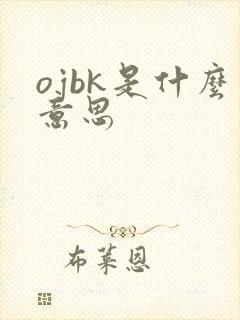 ojbk是什麼
意思
布萊恩